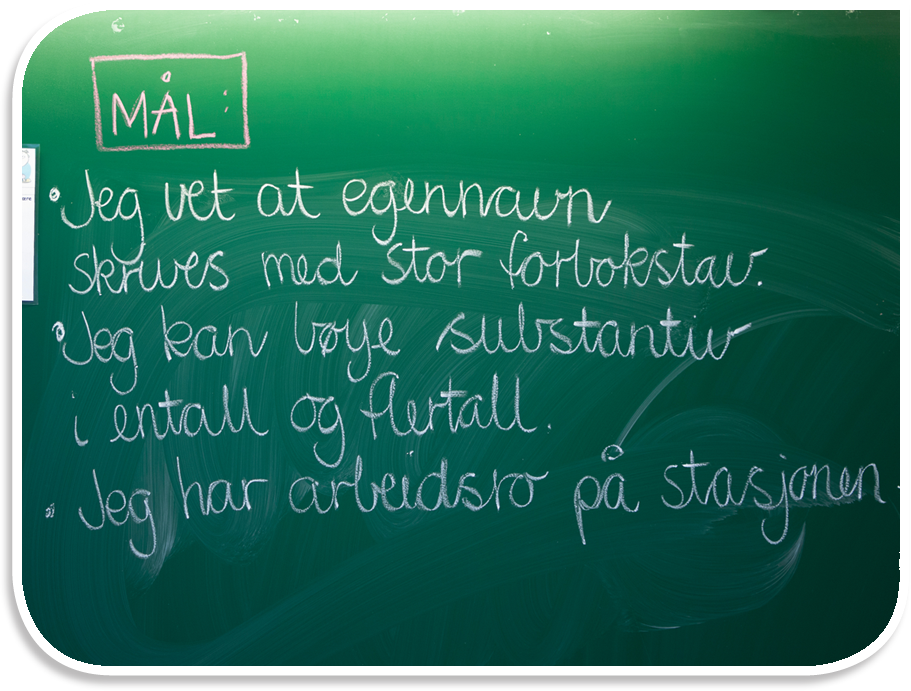 MÅL:
• Jeg vet at egennavn
skrives med stor forbokstav.
• Jeg kan bøye substantiv
i entall og flertall.
• Jeg har arbeidsro på stasjonen.